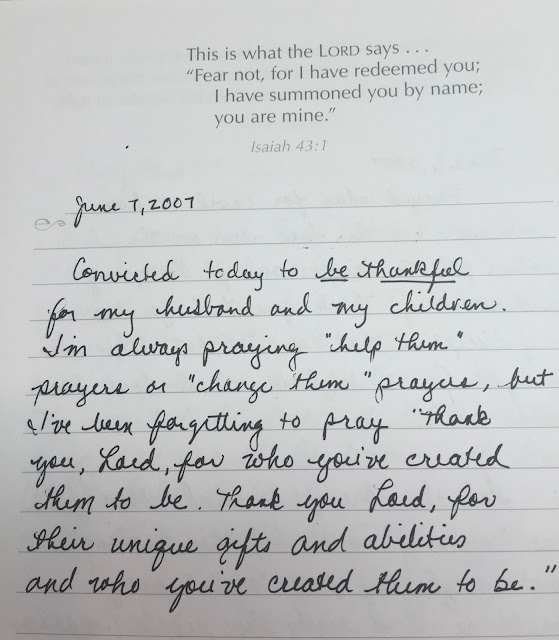 This is what the LORD says . . .
“Fear not, for I have redeemed you;
I have summoned you by name;
you are mine.”
Isaiah 43:1
June 7, 2007
Convicted today to be thankful
for my husband and my children.
I'm always praying "help them"
prayers or "change them" prayers, but
I've been forgetting to pray "Thank
you, Lord, for who you've created
them to be. Thank you Lord, for
their unique gifts and abilities
and who you've created them to be."